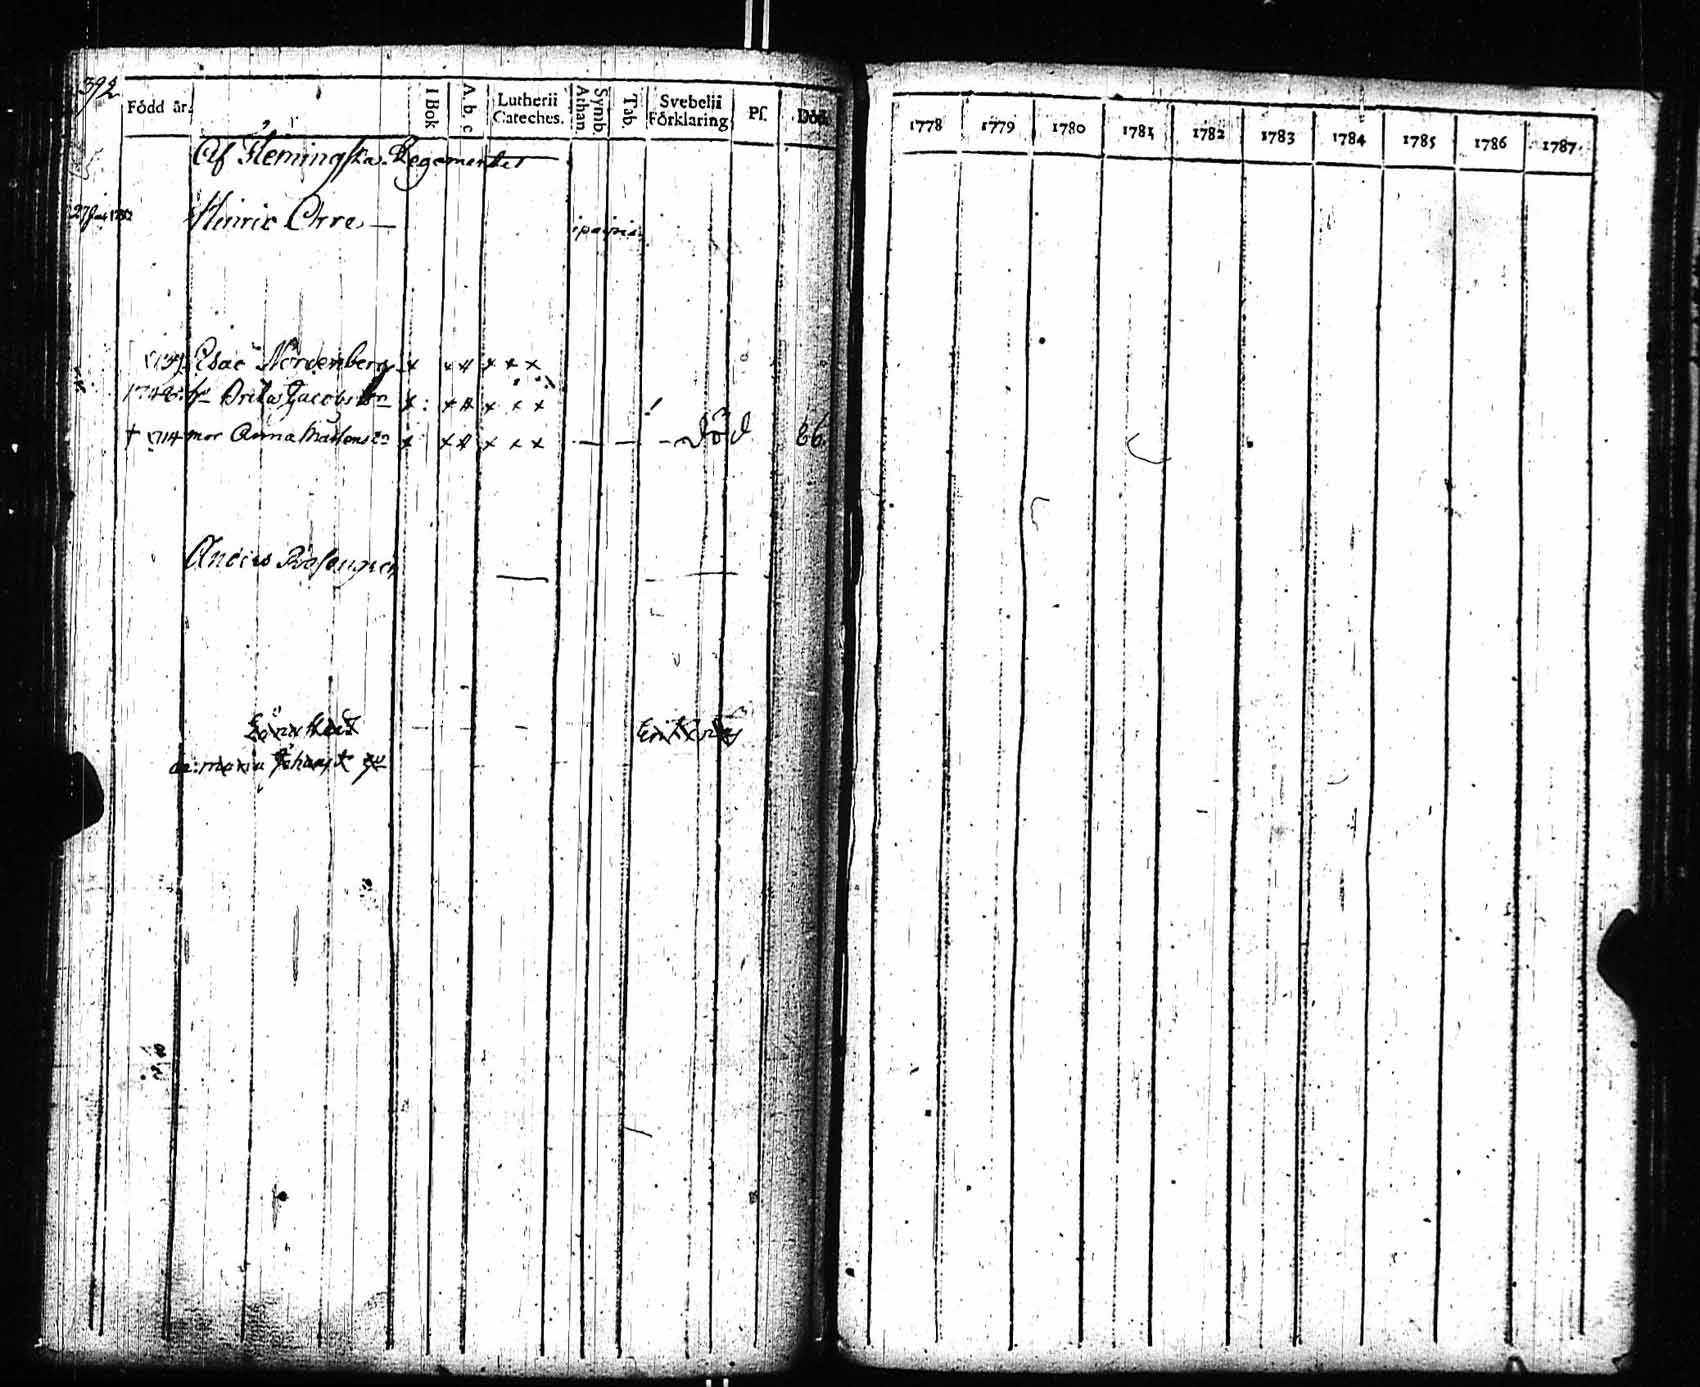 392
Född år. I Bok A. b. c Lutherii Cateches. Symb. Athan. Tab. Svebelii Förklaring Ps. Död.
Af Flemingska Regementet
Hinric Orre
Esac Nordenberg x x x x x x
hu Brita Jacobs dr x x x x x x
† 1714 mor Anna Mattons dr x x x x x x död 86
Anders Rosengren
Maria
1778 1779 1780 1781 1782 1783 1784 1785 1786 1787